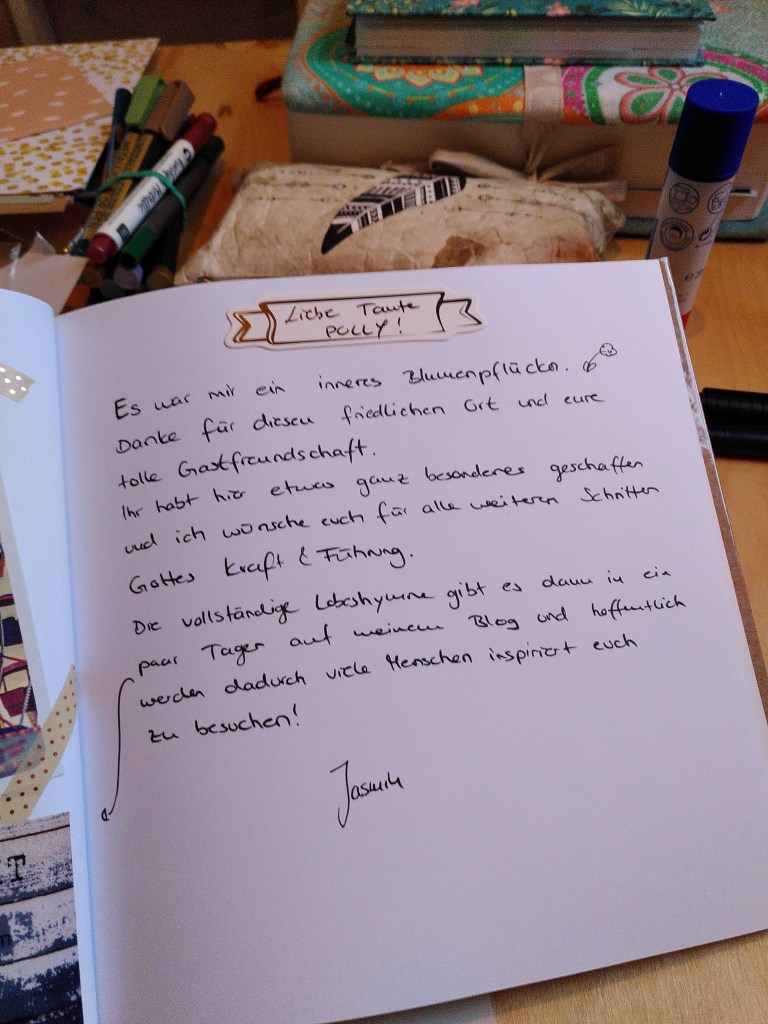 Liebe Tante
POLLY!
Es war mir ein inneres Blumenpflücken.
Danke für diesen friedlichen Ort und eure
tolle Gastfreundschaft.
Ihr habt hier etwas ganz besonderes geschaffen
und ich wünsche euch für alle weiteren Schritten
Gottes Kraft & Führung.
Die vollständige Lobeshymne gibt es dann in ein
paar Tagen auf meinem Blog und hoffentlich
werden dadurch viele Menschen inspiriert euch
zu besuchen!
Jasmin
T